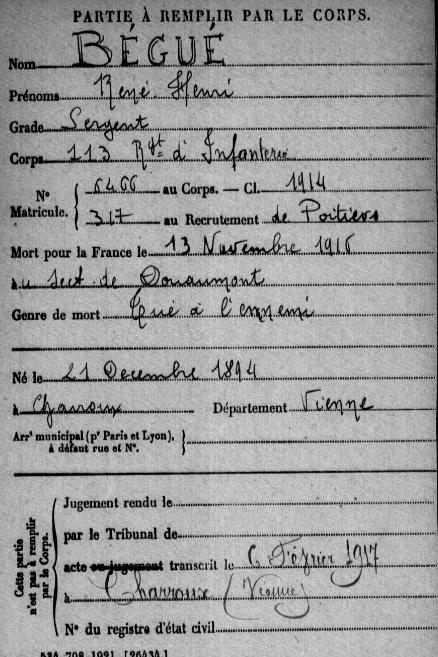 PARTIE À REMPLIR PAR LE CORPS.
Nom BÉGUÉ
Prénoms René Henri
Grade Sergent
Corps 113 Rgt d'Infanterie
N° Matricule. { 6466 au Corps. — Cl. 1914
317 au Recrutement de Poitiers
Mort pour la France le 13 Novembre 1916
à u Sect. de Douaumont
Genre de mort Tué à l'ennemi
Né le 21 Décembre 1894
à Charroux Département Vienne
Arrt municipal (pr Paris et Lyon),
à défaut rue et N°.
Cette partie n'est pas à remplir par le Corps.
Jugement rendu le
par le Tribunal de
acte ou jugement transcrit le 6 Février 1917
à Charroux (Vienne)
N° du registre d'état civil
534-708-1921. [26434]